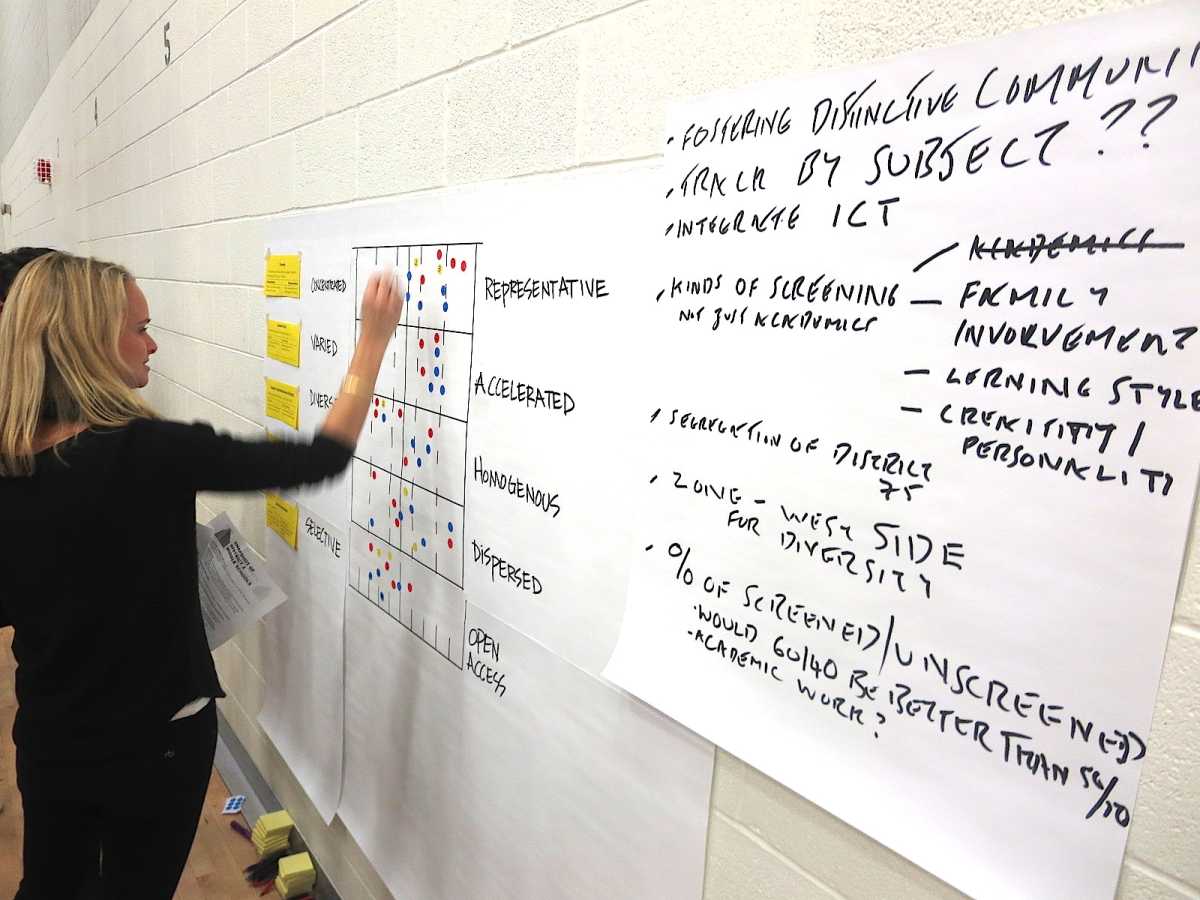 5
CONCENTRATED
VARIED
DIVERS
SELECTIVE
REPRESENTATIVE
ACCELERATED
HOMOGENOUS
DISPERSED
OPEN
ACCESS
• FOSTERING DISTINCTIVE COMMUNIT
• TRACK BY SUBJECT ??
• INTEGRATE ICT
• KINDS OF SCREENING
NOT JUST ACADEMICS
— ACADEMICS
— FAMILY
INVORVEMENT
— LERNING STYLE
— CREATITITY /
PERSONALITY
• SEGREGATION OF DISTRICT
75
• ZONE - WEST SIDE
FOR DIVERSITY
• % OF SCREENED/UNSCREENED
• WOULD 60/40 BE BETTER THAN 50/50
- ACADEMIC WORK?